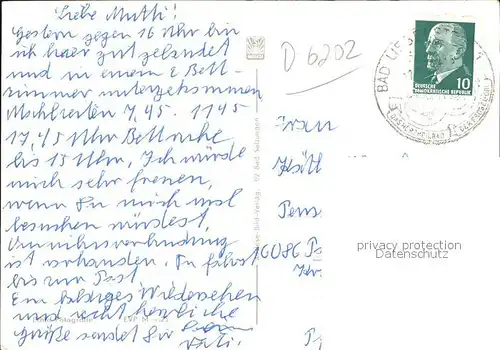 Liebe Mutti!
Gestern gegen 16 Uhr bin
ich hier gut gelandet
und in einem 2 Bett-
zimmer untergekommen
Mahlzeiten 7,45. 1145
17,45 Uhr Bettruhe
bis 15 Uhr, Ich würde
mich sehr freuen,
wenn Du mich mal
besuchen würdest,
Omnibusverbindung
ist vorhanden. Du fährst
bis zur Post.
Ein baldiges Wiedersehen
und recht herzliche
Grüße sendet Dir
Vati.
D 6202
BAD LIE
10
DEUTSCHE
DEMOKRATISCHE REPUBLIK
Bild-Verlag, 62 Bad Salzungen
Frau
Käthe
Pens
6086
privacy protection
Datenschutz